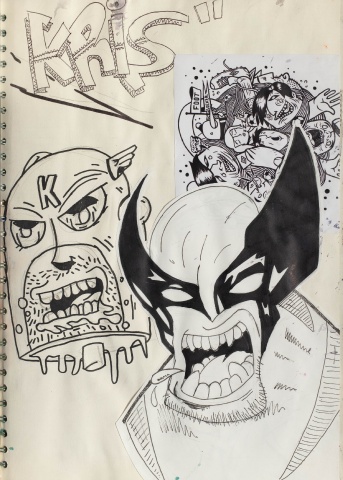 KRIS"
K